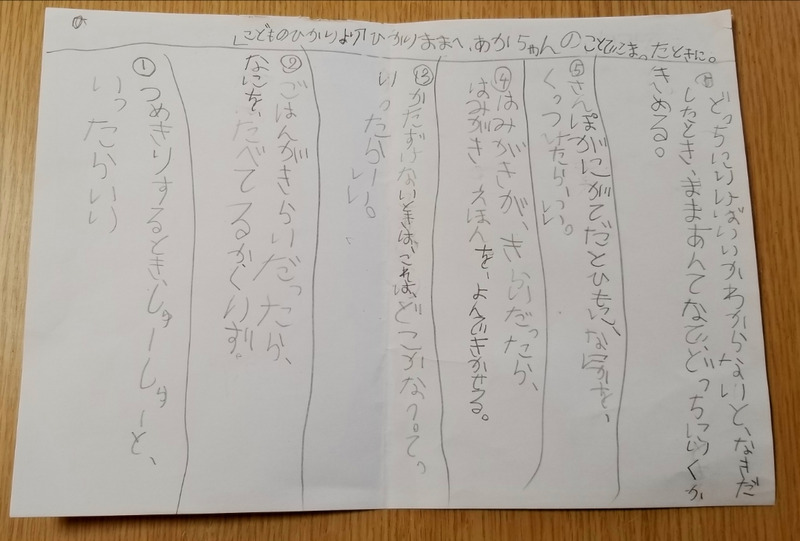 「こどものひかりより」ひかりままへ、あかちゃんのことでこまったときに。
①つめきりするとき、しゅーしゅーと、
いったらいい
②ごはんがきらいだったら、
なにを、たべてるかくいず。
③かたずけないときは、これは、どこかな?って。
いったらいい。
④はみがきが、きらいだったら、
はみがき えほんを、よんできかせる。
⑤さんぽがにがてだとひもに、なにかを、
くっつけたらいい。
⑥どっちにいけばいいかわからないと、なきだ
したとき、ままあんてなで、どっちにいくか
きめる。